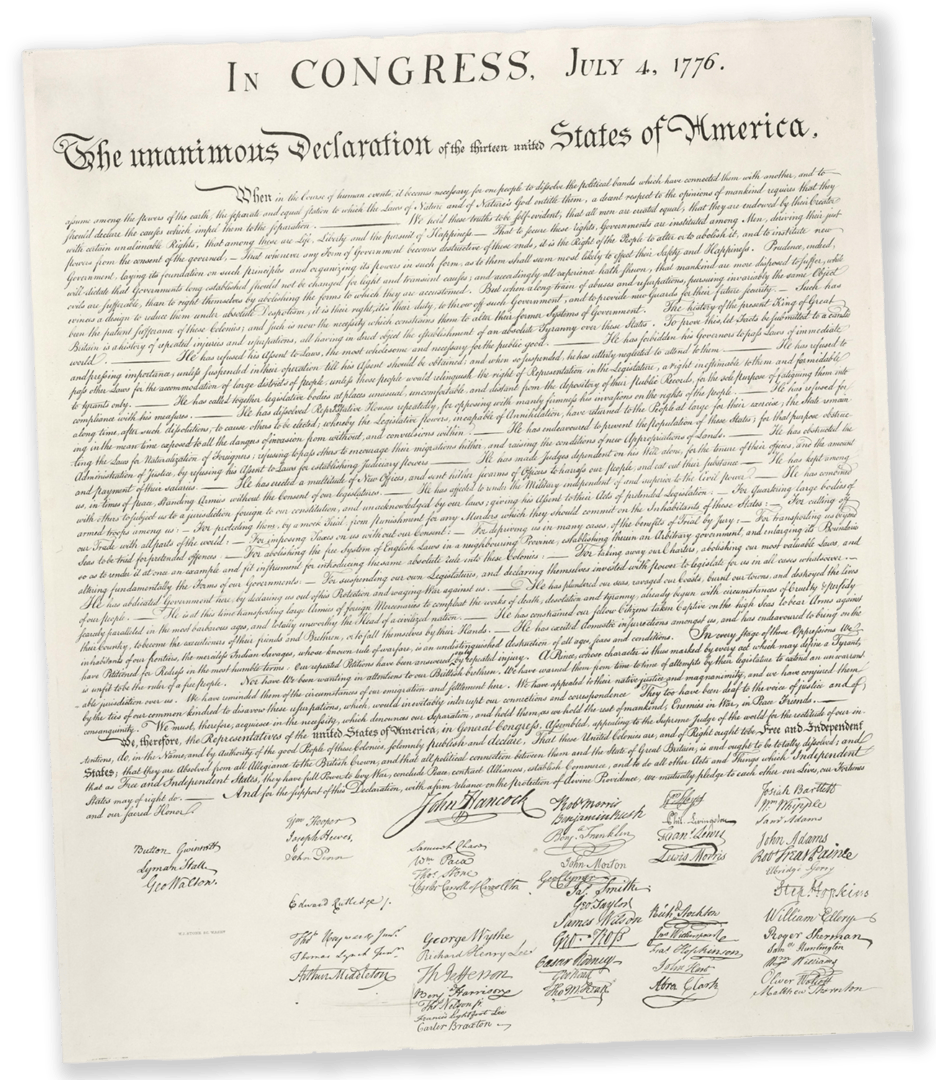 IN CONGRESS, JULY 4, 1776.
The unanimous Declaration of the thirteen united States of America,
When in the Course of human events, it becomes necessary for one people to dissolve the political bands which have connected them with another, and to
assume among the powers of the earth, the separate and equal station to which the Laws of Nature and of Nature's God entitle them, a decent respect to the opinions of mankind requires that they
should declare the causes which impel them to the separation. — We hold these truths to be self-evident, that all men are created equal, that they are endowed by their Creator
with certain unalienable Rights, that among these are Life, Liberty and the pursuit of Happiness. — That to secure these rights, Governments are instituted among Men, deriving their just
powers from the consent of the governed, — That whenever any Form of Government becomes destructive of these ends, it is the Right of the People to alter or to abolish it, and to institute new
Government, laying its foundation on such principles and organizing its powers in such form, as to them shall seem most likely to effect their Safety and Happiness. Prudence, indeed,
will dictate that Governments long established should not be changed for light and transient causes; and accordingly all experience hath shewn, that mankind are more disposed to suffer, while
evils are sufferable, than to right themselves by abolishing the forms to which they are accustomed. But when a long train of abuses and usurpations, pursuing invariably the same Object
evinces a design to reduce them under absolute Despotism, it is their right, it is their duty, to throw off such Government, and to provide new Guards for their future security. — Such has
been the patient sufferance of these Colonies; and such is now the necessity which constrains them to alter their former Systems of Government. The history of the present King of Great
Britain is a history of repeated injuries and usurpations, all having in direct object the establishment of an absolute Tyranny over these States. To prove this, let Facts be submitted to a candid
world. — He has refused his Assent to Laws, the most wholesome and necessary for the public good. — He has forbidden his Governors to pass Laws of immediate
and pressing importance, unless suspended in their operation till his Assent should be obtained; and when so suspended, he has utterly neglected to attend to them. — He has refused to
pass other Laws for the accommodation of large districts of people, unless those people would relinquish the right of Representation in the Legislature, a right inestimable to them and formidable
to tyrants only. — He has called together legislative bodies at places unusual, uncomfortable, and distant from the depository of their Public Records, for the sole purpose of fatiguing them into
compliance with his measures. — He has dissolved Representative Houses repeatedly, for opposing with manly firmness his invasions on the rights of the people. — He has refused for
a long time, after such dissolutions, to cause others to be elected; whereby the Legislative powers, incapable of Annihilation, have returned to the People at large for their exercise; the State remain-
ing in the mean time exposed to all the dangers of invasion from without, and convulsions within. — He has endeavoured to prevent the population of these States; for that purpose obstruc-
ting the Laws for Naturalization of Foreigners; refusing to pass others to encourage their migrations hither, and raising the conditions of new Appropriations of Lands. — He has obstructed the
Administration of Justice, by refusing his Assent to Laws for establishing Judiciary powers. — He has made Judges dependent on his Will alone, for the tenure of their offices, and the amount
and payment of their salaries. — He has erected a multitude of New Offices, and sent hither swarms of Officers to harrass our people, and eat out their substance. — He has kept among
us, in times of peace, Standing Armies without the Consent of our legislatures. — He has affected to render the Military independent of and superior to the Civil power. — He has combined
with others to subject us to a jurisdiction foreign to our constitution, and unacknowledged by our laws; giving his Assent to their Acts of pretended Legislation: — For Quartering large bodies of
armed troops among us: — For protecting them, by a mock Trial, from punishment for any Murders which they should commit on the Inhabitants of these States: — For cutting off
our Trade with all parts of the world: — For imposing Taxes on us without our Consent: — For depriving us in many cases, of the benefits of Trial by Jury: — For transporting us beyond
Seas to be tried for pretended offences — For abolishing the free System of English Laws in a neighbouring Province, establishing therein an Arbitrary government, and enlarging its Boundaries
so as to render it at once an example and fit instrument for introducing the same absolute rule into these Colonies: — For taking away our Charters, abolishing our most valuable Laws, and
altering fundamentally the Forms of our Governments: — For suspending our own Legislatures, and declaring themselves invested with power to legislate for us in all cases whatsoever. —
He has abdicated Government here, by declaring us out of his Protection and waging War against us. — He has plundered our seas, ravaged our Coasts, burnt our towns, and destroyed the lives
of our people. — He is at this time transporting large Armies of foreign Mercenaries to compleat the works of death, desolation and tyranny, already begun with circumstances of Cruelty & perfidy
scarcely paralleled in the most barbarous ages, and totally unworthy the Head of a civilized nation. — He has constrained our fellow Citizens taken Captive on the high Seas to bear Arms against
their Country, to become the executioners of their friends and Brethren, or to fall themselves by their Hands. — He has excited domestic insurrections amongst us, and has endeavoured to bring on the
inhabitants of our frontiers, the merciless Indian Savages, whose known rule of warfare, is an undistinguished destruction of all ages, sexes and conditions. In every stage of these Oppressions We
have Petitioned for Redress in the most humble terms: Our repeated Petitions have been answered only by repeated injury. A Prince, whose character is thus marked by every act which may define a Tyrant,
is unfit to be the ruler of a free people. Nor have We been wanting in attentions to our Brittish brethren. We have warned them from time to time of attempts by their legislature to extend an unwarrant-
able jurisdiction over us. We have reminded them of the circumstances of our emigration and settlement here. We have appealed to their native justice and magnanimity, and we have conjured them
by the ties of our common kindred to disavow these usurpations, which, would inevitably interrupt our connections and correspondence. They too have been deaf to the voice of justice and of
consanguinity. We must, therefore, acquiesce in the necessity, which denounces our Separation, and hold them, as we hold the rest of mankind, Enemies in War, in Peace Friends. —
We, therefore, the Representatives of the united States of America, in General Congress, Assembled, appealing to the Supreme Judge of the world for the rectitude of our in-
tentions, do, in the Name, and by Authority of the good People of these Colonies, solemnly publish and declare, That these United Colonies are, and of Right ought to be Free and Independent
States; that they are Absolved from all Allegiance to the British Crown, and that all political connection between them and the State of Great Britain, is and ought to be totally dissolved; and
that as Free and Independent States, they have full Power to levy War, conclude Peace, contract Alliances, establish Commerce, and to do all other Acts and Things which Independent
States may of right do. — And for the support of this Declaration, with a firm reliance on the protection of divine Providence, we mutually pledge to each other our Lives, our Fortunes
and our sacred Honor.
Button Gwinnett
Lyman Hall
Geo Walton.
Wm Hooper
Joseph Hewes,
John Penn
Edward Rutledge /.
Thos Heyward Junr.
Thomas Lynch Junr.
Arthur Middleton
John Hancock
Samuel Chase
Wm Paca
Thos Stone
Charles Carroll of Carrollton
George Wythe
Richard Henry Lee
Th Jefferson
Benj Harrison
Thos Nelson jr.
Francis Lightfoot Lee
Carter Braxton
Robt Morris
Benjamin Rush
Benj. Franklin
John Morton
Geo Clymer
Jas. Smith
Geo. Taylor
James Wilson
Geo. Ross
Caesar Rodney
Geo Read
Tho M:Kean
Wm Floyd
Phil. Livingston
Frans. Lewis
Lewis Morris
Richd. Stockton
Jno Witherspoon
Fras. Hopkinson
John Hart
Abra Clark
Josiah Bartlett
Wm Whipple
Saml Adams
John Adams
Robt Treat Paine
Elbridge Gerry
Step. Hopkins
William Ellery
Roger Sherman
Saml Huntington
Wm Williams
Oliver Wolcott
Matthew Thornton